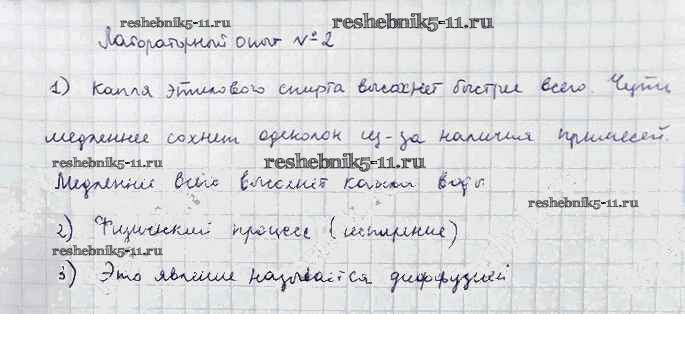 reshebnik5-11.ru
reshebnik5-11.ru
Лабораторный опыт №2
1) Капля этилового спирта высохнет быстрее всего. Чуть
медленнее сохнет одеколон из-за наличия примесей.
reshebnik5-11.ru
reshebnik5-11.ru
Медленнее всего высохнет капля воды.
reshebnik5-11.ru
2) Физический процесс (испарение)
reshebnik5-11.ru
3) Это явление называется диффузией